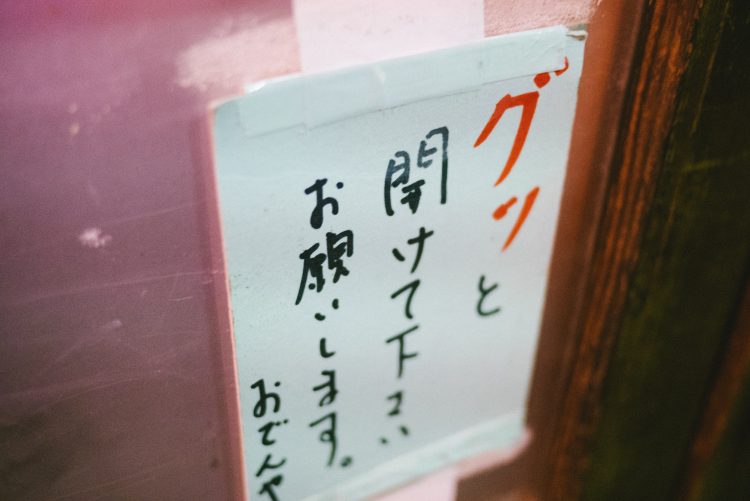 グッと
開けて下さい
お願いします。
おでんや